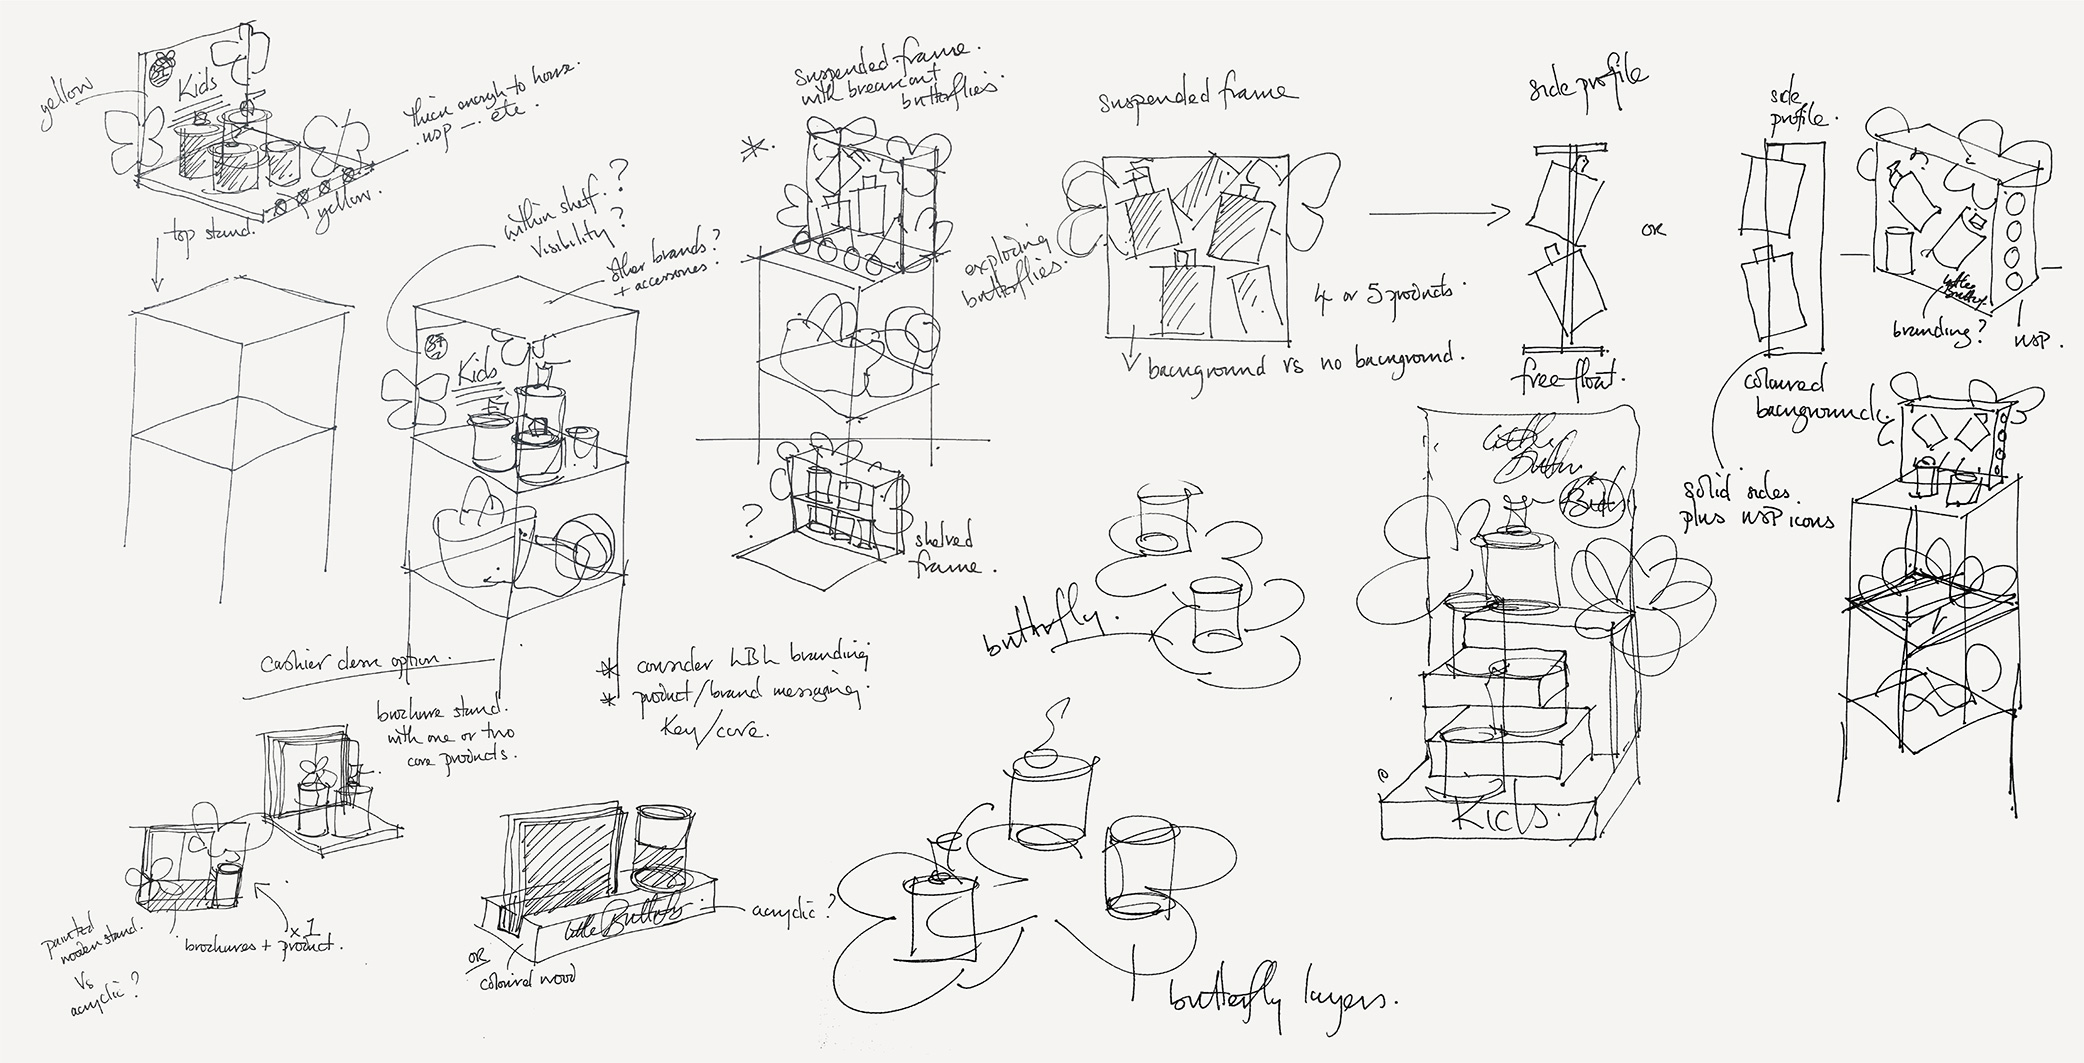 yellow
Kids
thick enough to house
usp — etc.
yellow.
top stand.
within shelf?
Visibility?
other brands?
+ accessories.
Kids
cashier desk option.
brochure stand.
with one or two
core products.
suspended frame.
with breakout
butterflies.
*.
?
shelved
frame.
* consider LBL branding
* product/brand messaging.
Key/core.
suspended frame
exploding
butterflies.
4 or 5 products.
background vs no background.
side profile
free float.
or
side
profile.
coloured
background.
solid sides.
plus USP icons
branding?
USP.
butterfly.
Kids
Kids.
painted
wooden stand.
vs
acrylic?
brochures + product.
x 1
Little Butterfly
acrylic?
OR
coloured wood
butterfly layers.